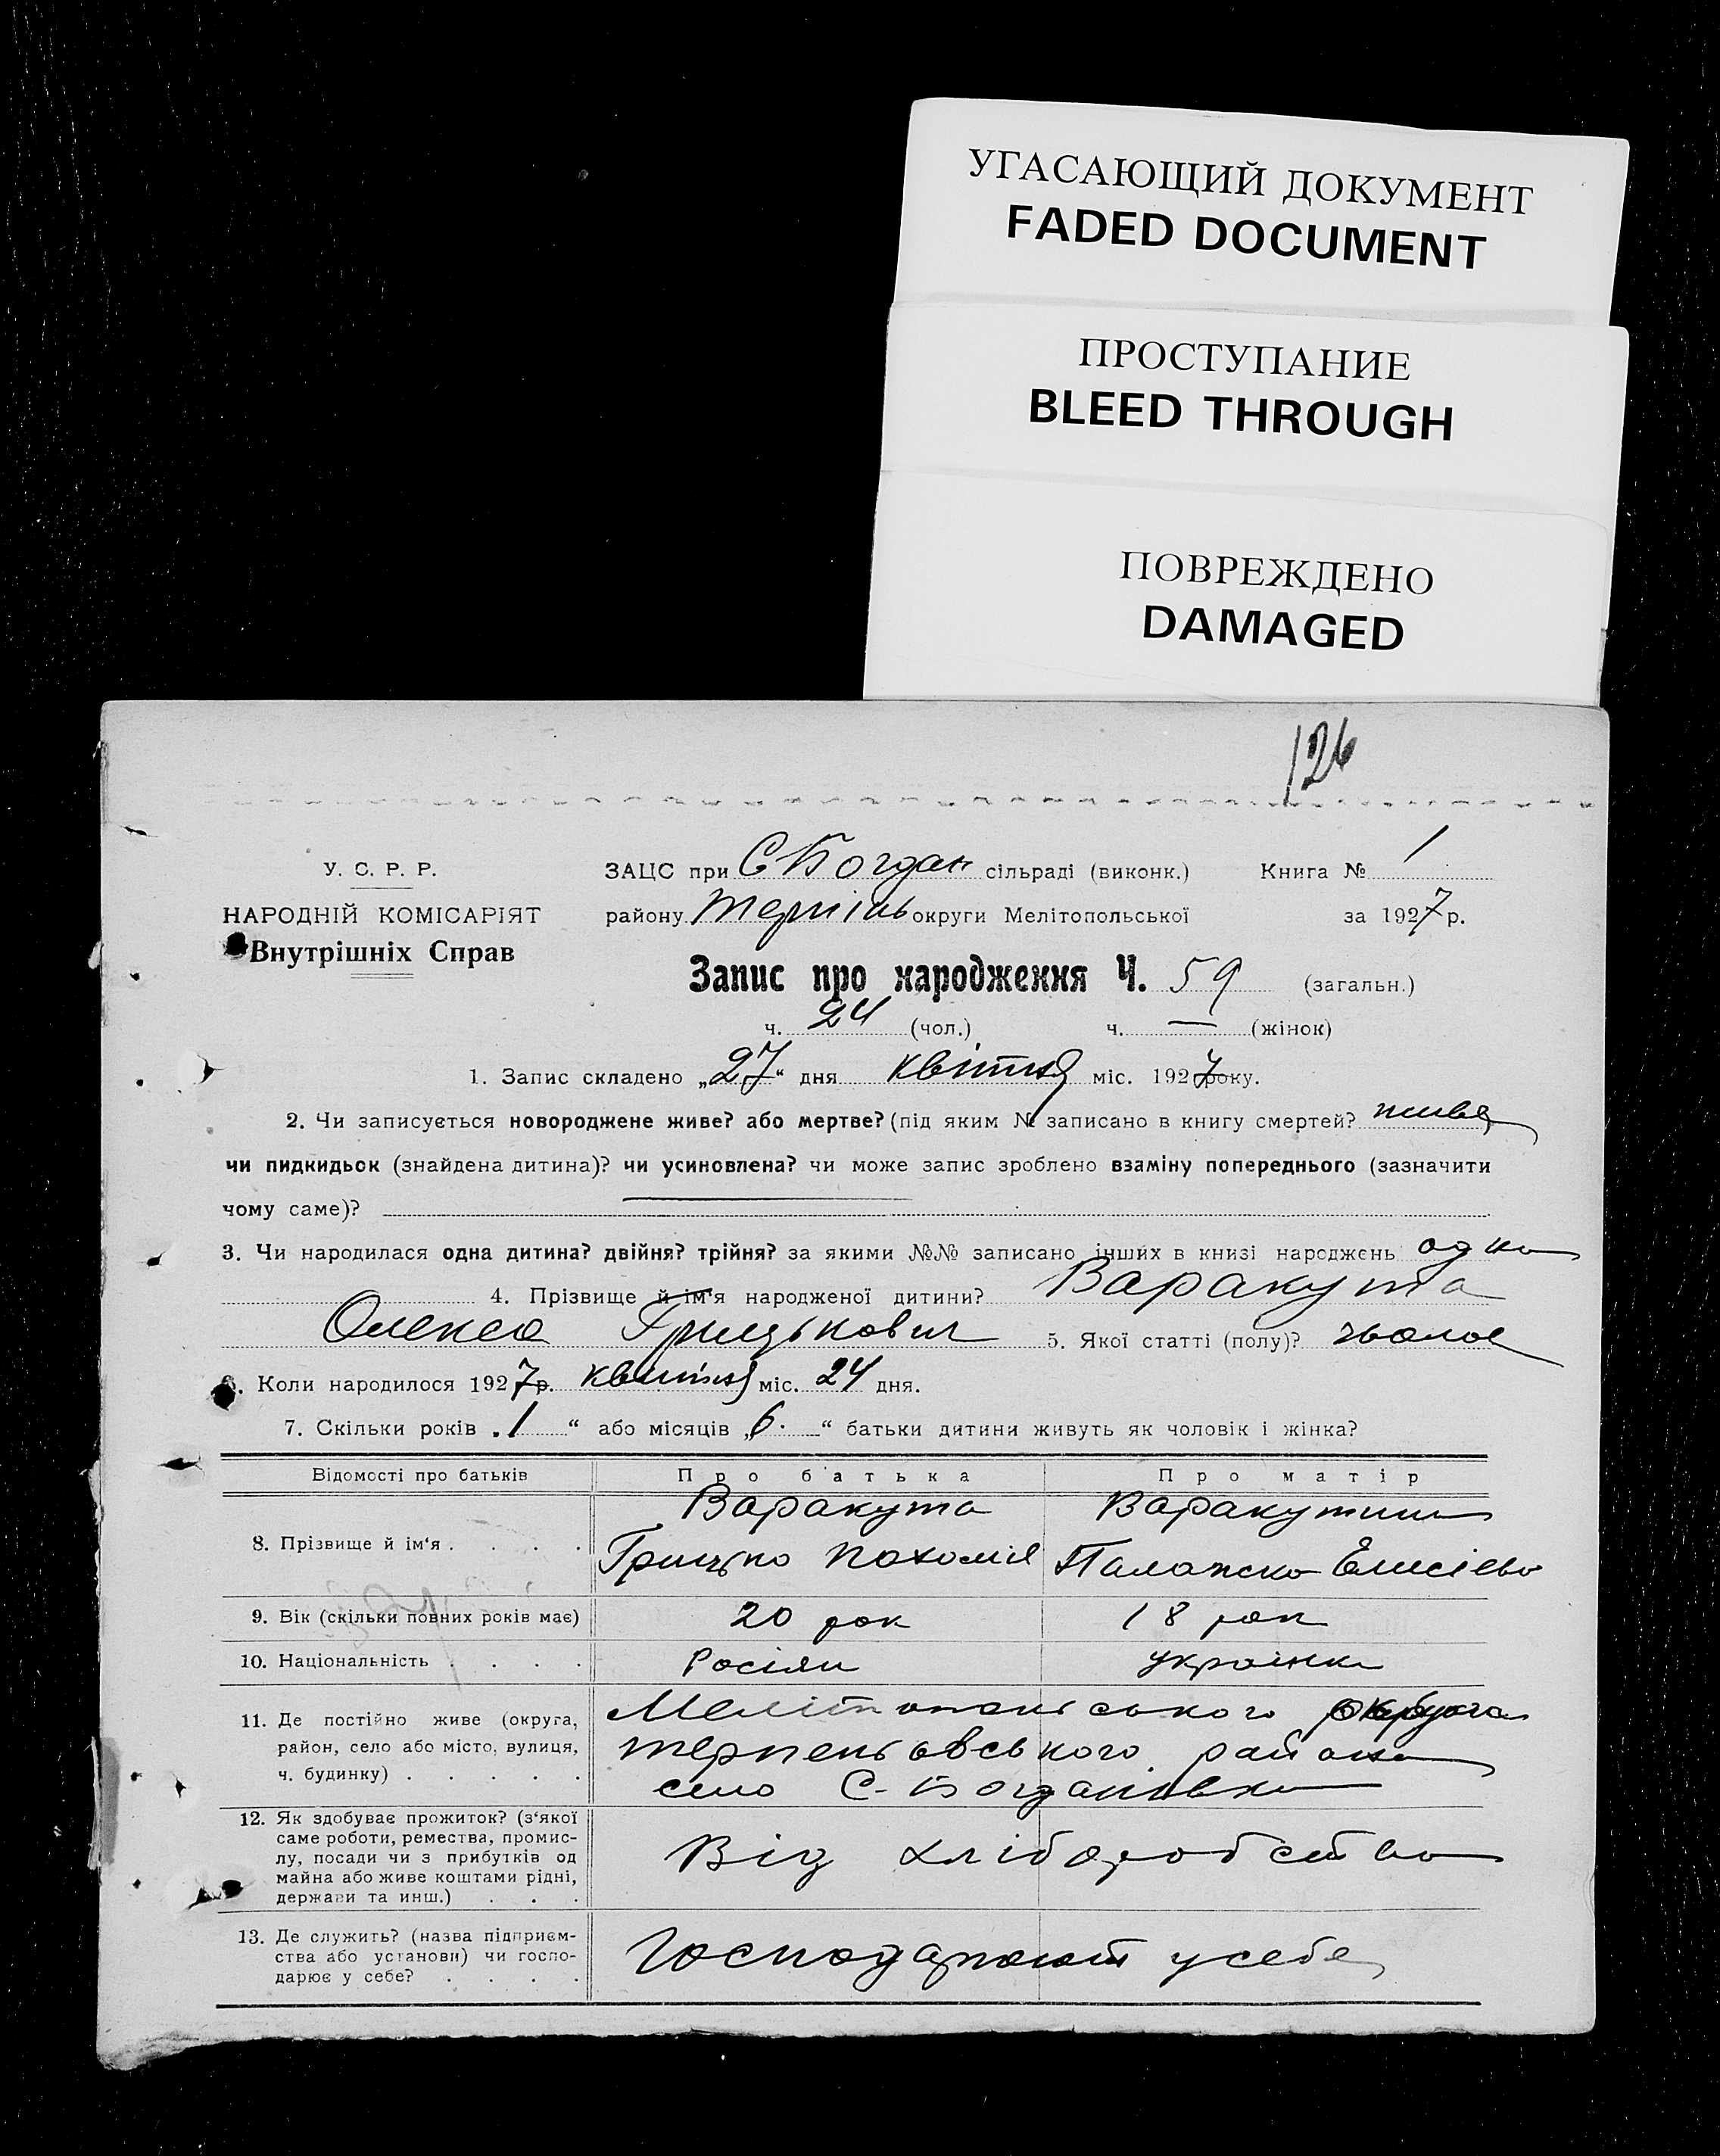 УГАСАЮЩИЙ ДОКУМЕНТ
FADED DOCUMENT
ПРОСТУПАНИЕ
BLEED THROUGH
ПОВРЕЖДЕНО
DAMAGED
126
У. С. Р. Р.
НАРОДНІЙ КОМІСАРІЯТ
Внутрішніх Справ
ЗАЦС при С Богдан сільраді (виконк.) Книга № 1
району Терпінь округи Мелітопольської за 1927 р.
Запис про народження Ч. 59 (загальн.)
ч. 24 (чол.) ч. — (жінок)
1. Запис складено „27“ дня квітня міс. 1927 року.
2. Чи записується новороджене живе? або мертве? (під яким № записано в книгу смертей? живе
чи пидкидьок (знайдена дитина)? чи усиновлена? чи може запис зроблено взаміну попереднього (зазначити
чому саме)?
3. Чи народилася одна дитина? двійня? трійня? за якими №№ записано інших в книзі народжень одна
4. Прізвище й ім'я народженої дитини? Варакута
Олекса Грицькович 5. Якої статті (полу)?
6. Коли народилося 1927 р. квітня міс. 24 дня.
7. Скільки років „1“ або місяців „6.“ батьки дитини живуть як чоловік і жінка?
Відомості про батьків Про батька Про матір
8. Прізвище й ім'я . . . . Варакута Варакутина
Грицько Пахомів Палажка Елисіева
9. Вік (скільки повних років має) 20 рок 18 рок
10. Національність . . . . Росіян українка
11. Де постійно живе (округа, район, село або місто, вулиця, ч. будинку) . . . . .
Мелітопольського округа
терпеньовського района
село С-Богданівка
12. Як здобуває прожиток? (з'якої саме роботи, ремества, промислу, посади чи з прибутків од майна або живе коштами рідні, держави та инш.) . . .
Від хліборобства
13. Де служить? (назва підприємства або установи) чи господарює у себе? . . . .
Господарюют у себе